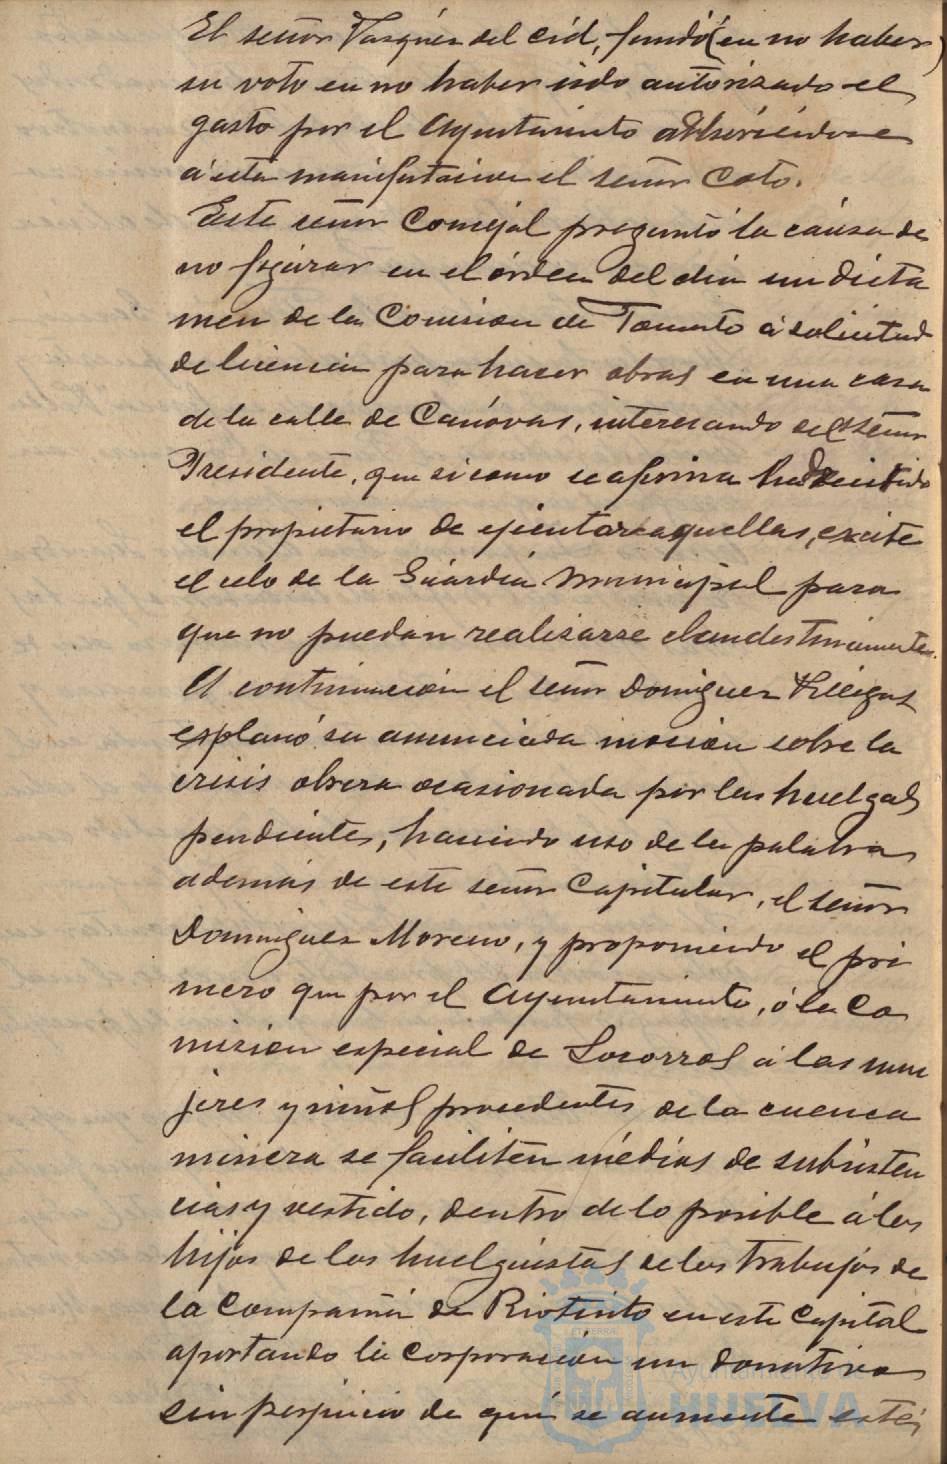 El señor Vazquez del Cid, fundó (en no haber)
su voto en no haber sido autorizado el
gasto por el Ayuntamiento adhiriéndose
á esta manifestacion el señor Coto.
Este señor Concejal preguntó la causa de
no figurar en el órden del dia un dicta
men de la Comision de Fomento á solicitud
de licencia para hacer obras en una casa
de la calle de Cánovas, interesando del señor
Presidente, que si como se afirma ha decidido
el propietario de ejecutar aquellas, excite
el celo de la Guardia Municipal para
que no puedan realizarse clandestinamente.
A continuacion el señor Dominguez Villegas
esplanó su anunciada mocion sobre la
crisis obrera ocasionada por las huelgas
pendientes, haciendo uso de la palabra
además de este señor Capitular, el señor
Dominguez Moreno, y proponiendo el pri
mero que por el Ayuntamiento, ó la Co
mision especial de Socorros á las mu
jeres y niños procedentes de la cuenca
minera se faciliten médios de subsisten
cias y vestido, dentro de lo posible á los
hijos de los huelguistas de los trabajos de
la Compañia de Riotinto en esta Capital
aportando la Corporacion un donativo
sin perjuicio de que se aumente este,
Ayuntamiento de
HUELVA